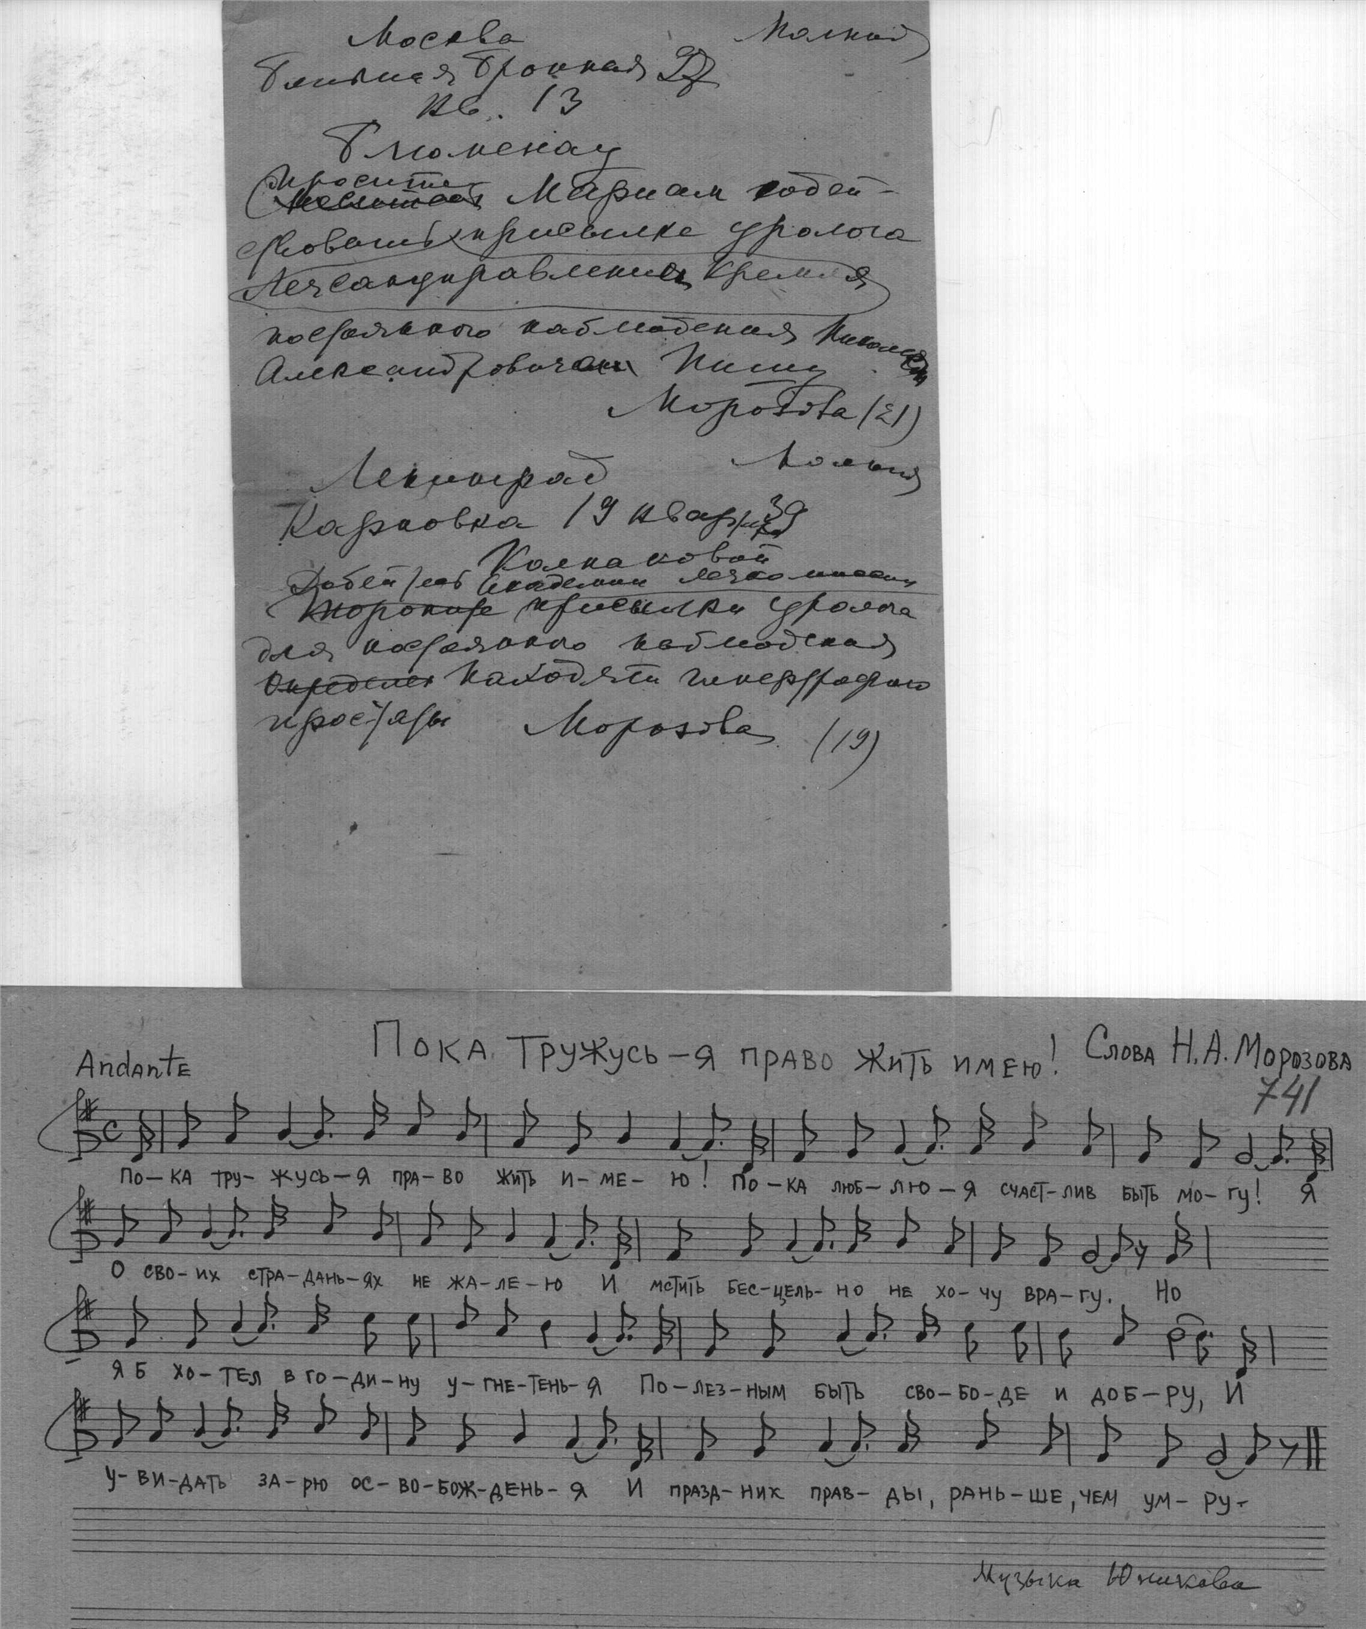 Москва Молния
Большая Бронная 27
кв. 13
Блюменау
Просите
Мариам содей-
ствовать присылке уролога
Лечсануправления Кремля
постоянного наблюдения Николаем
Александровичем Пишу
Морозова (21)
Ленинград Молния
Карповка 19 квартира 39
Колпаковой
Академии лечкомиссии
Торопите присылки уролога
для постоянного наблюдения
Определил находят гипертрофию
простаты Морозова (19)
Пока тружусь — я право жить имею! Слова Н. А. Морозова
Andante
741
По-ка тру-жусь-я пра-во жить и-ме-ю! По-ка люб-лю-я счаст-лив быть мо-гу! Я
О сво-их стра-дань-ях не жа-ле-ю И мстить бес-цель-но не хо-чу вра-гу. Но
Я б хо-тел в го-ди-ну у-гне-тень-я По-лез-ным быть сво-бо-де и доб-ру, И
у-ви-дать за-рю ос-во-бож-день-я И празд-ник прав-ды, рань-ше, чем ум-ру-
Музыка Юникова